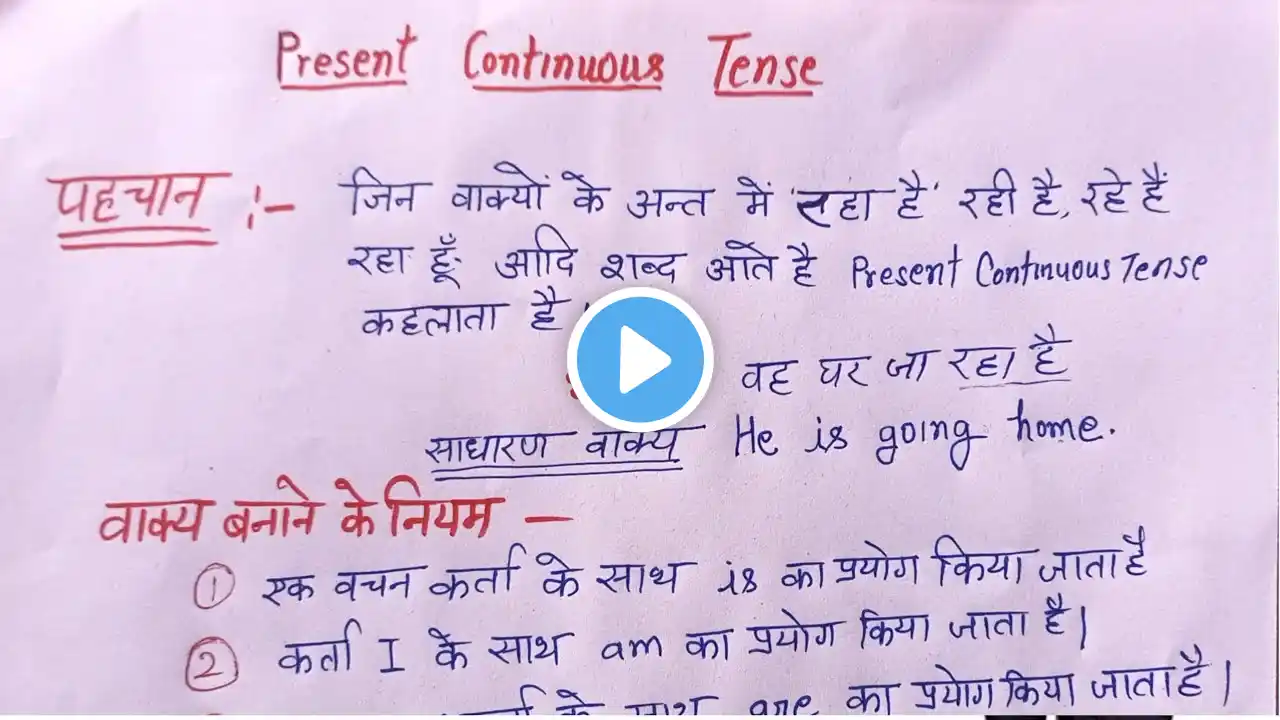 Present Continuous Tense
पहचान :- जिन वाक्यों के अन्त में 'रहा है' रही है, रहे हैं
रहा हूँ आदि शब्द आते है Present Continuous Tense
कहलाता है
वह घर जा रहा है
साधारण वाक्य He is going home.
वाक्य बनाने के नियम –
① एक वचन कर्ता के साथ is का प्रयोग किया जाता है
② कर्ता I के साथ am का प्रयोग किया जाता है।
के साथ are का प्रयोग किया जाता है।